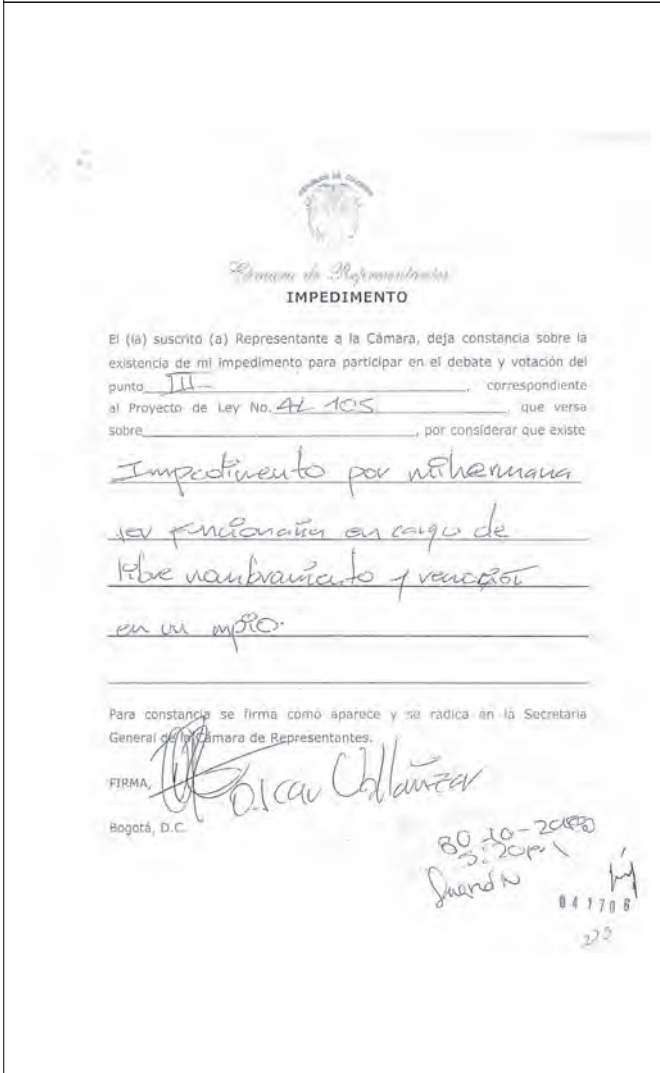 Cámara de Representantes
IMPEDIMENTO
El (la) suscrito (a) Representante a la Cámara, deja constancia sobre la
existencia de mi impedimento para participar en el debate y votación del
punto III- , correspondiente
al Proyecto de Ley No. AL 105 , que versa
sobre , por considerar que existe
Impedimento por mi hermana
ser funcionaria en cargo de
libre nombramiento y remoción
en un mpio.
Para constancia se firma como aparece y se radica en la Secretaria
General de la Cámara de Representantes.
FIRMA, Oscar
Bogotá, D.C.
30-10-
041706